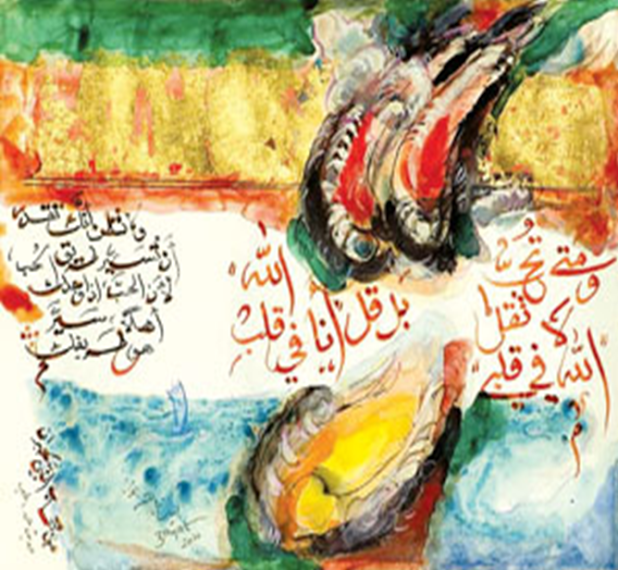 ومتى تُحبّ
لا تقل
الله في قلبي
بل قل أنا في قلب
الله
ولا تظن أنك تقتدر
أن تُسيّر طريق الحُب،
لأن الحبّ، إذا وجدك
أهلاً، سيّر
هو طريقك